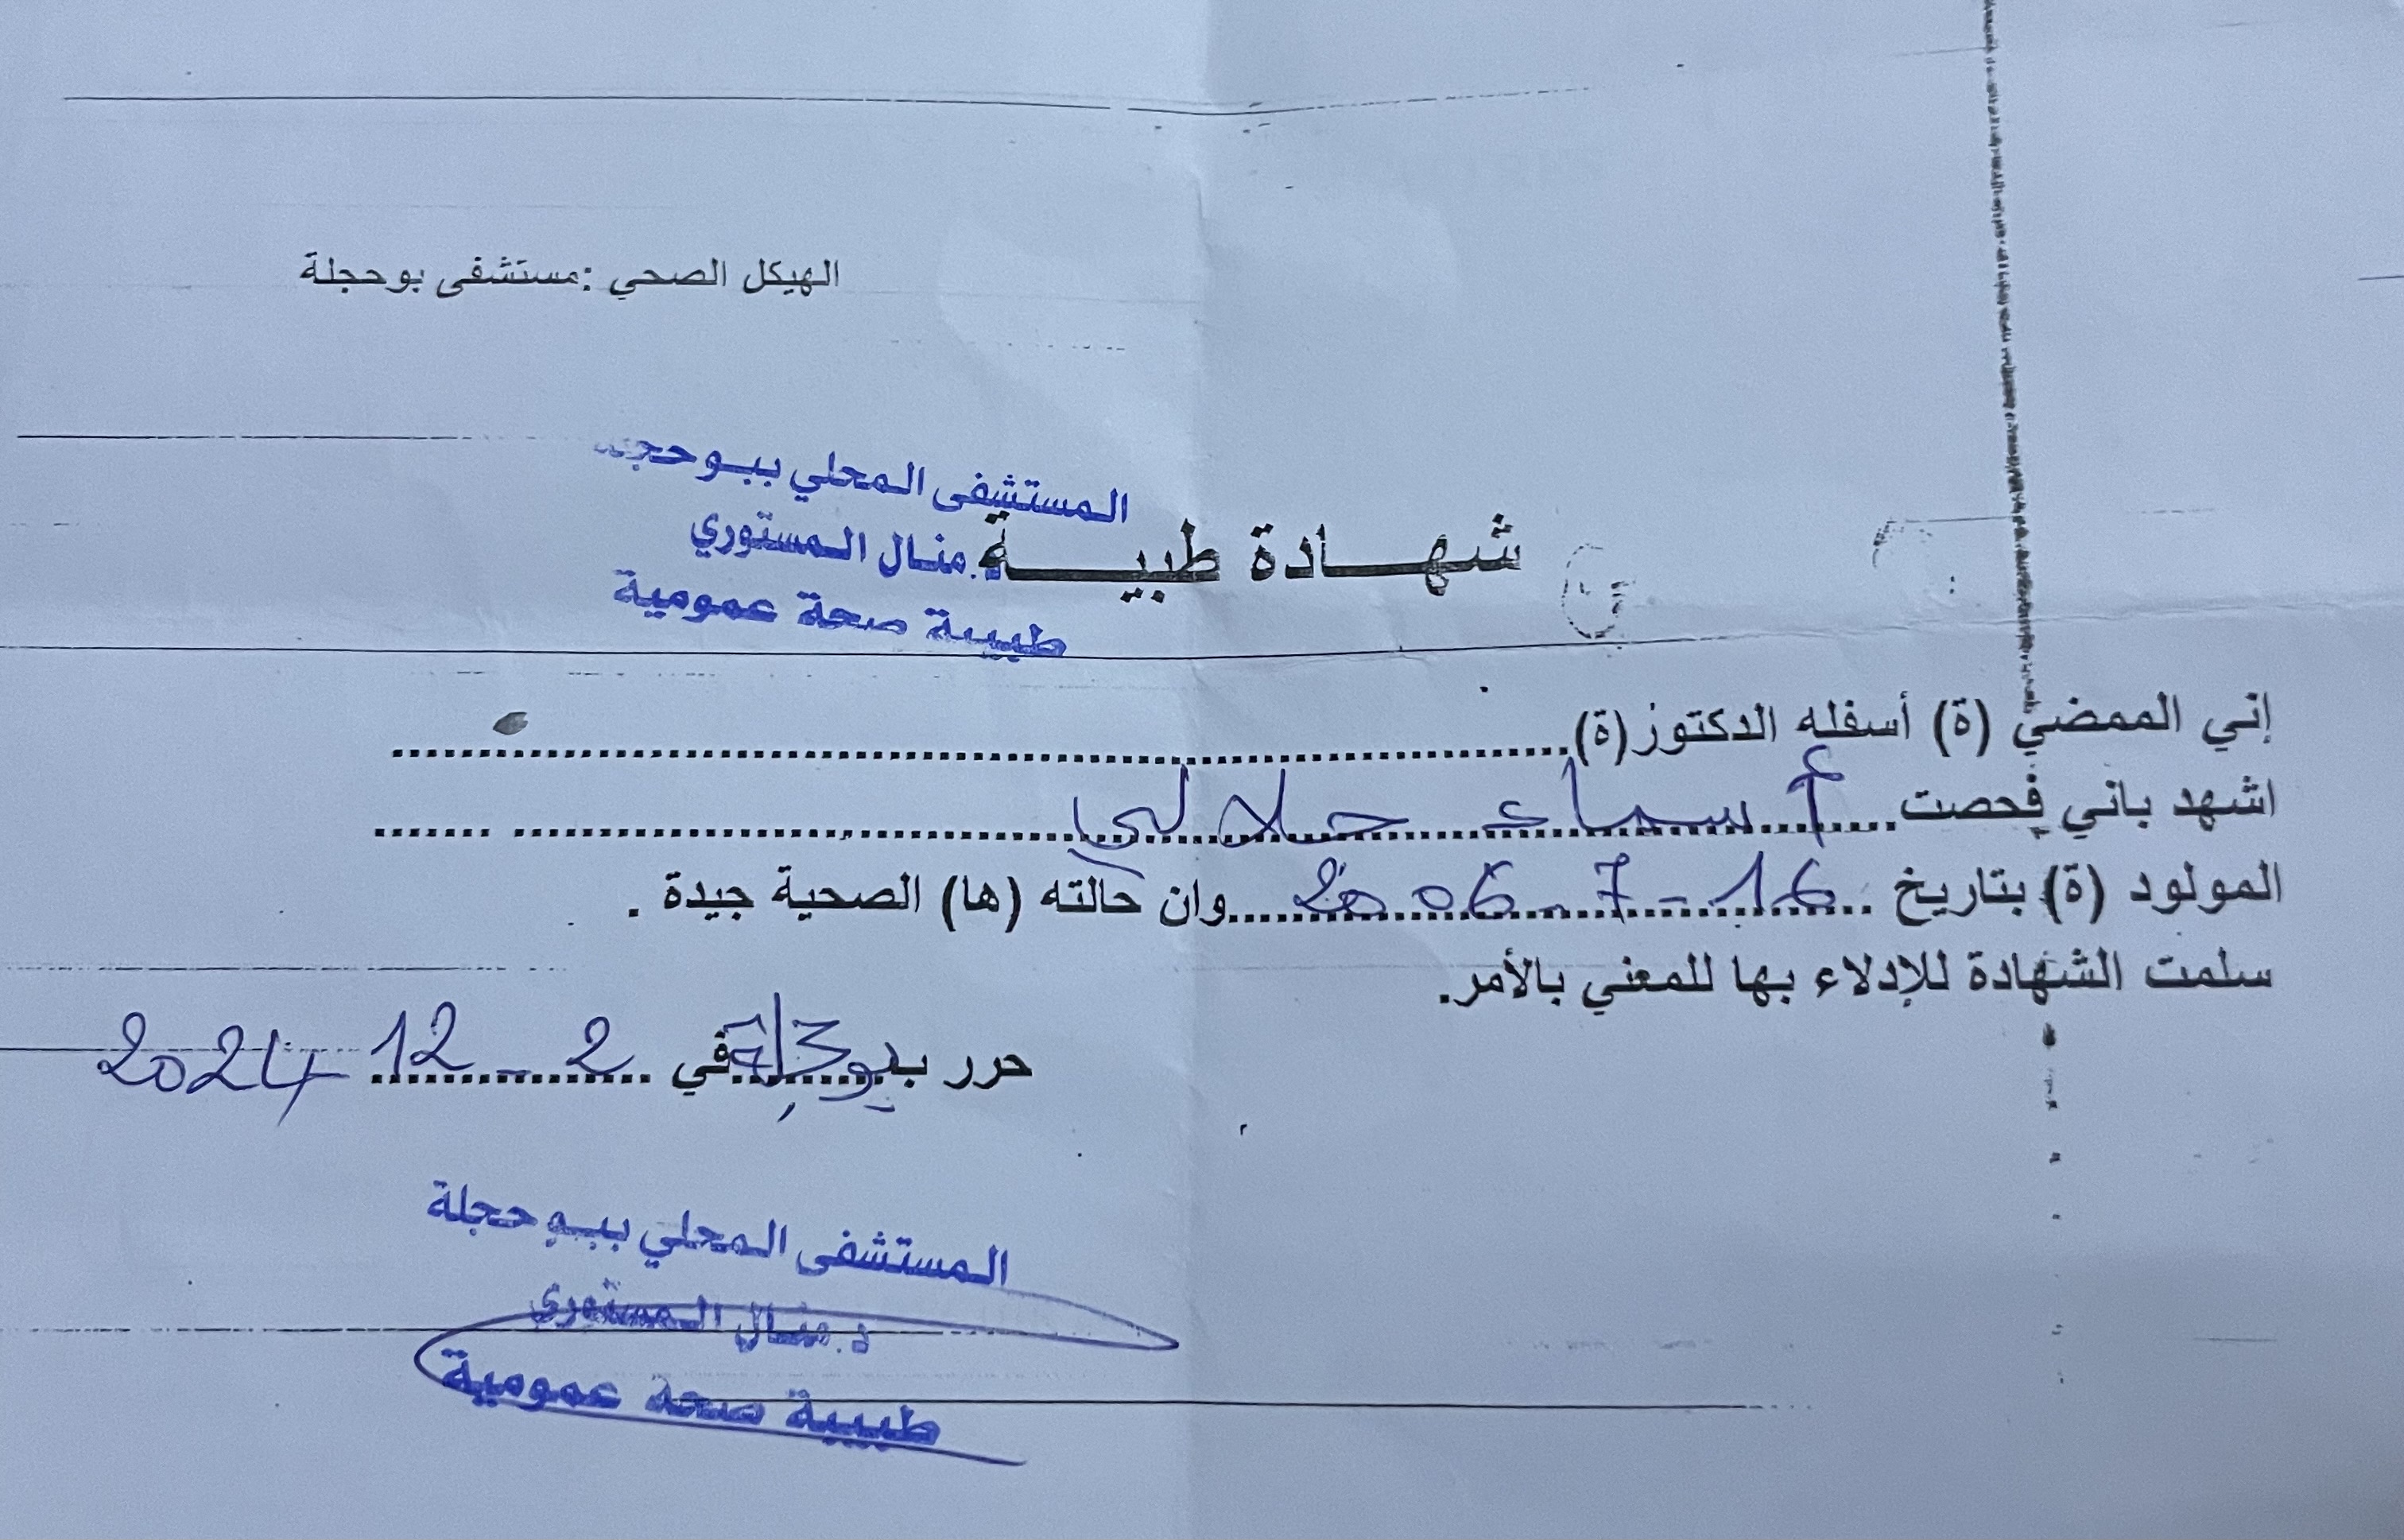 الهيكل الصحي :مستشفى بوحجلة
المستشفى المحلي ببوحجلة
د.منال المستوري
طبيبة صحة عمومية
شهادة طبية
إني الممضي (ة) أسفله الدكتور(ة)........................................
اشهد باني فحصت....أسماء جلالي........................
المولود (ة) بتاريخ ..16-7-2006....وان حالته (ها) الصحية جيدة .
سلمت الشهادة للإدلاء بها للمعني بالأمر.
حرر ببوحجلة في 2-12-2024
المستشفى المحلي ببوحجلة
د.منال المستوري
طبيبة صحة عمومية